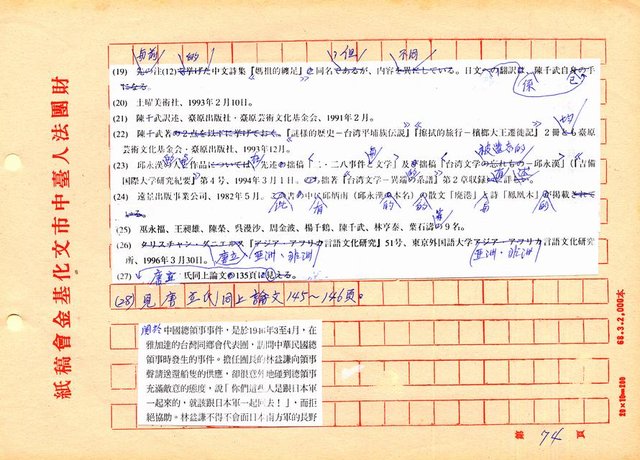 財團法人臺中市文化基金會稿紙
与前 的 但 不同
(19) 先の注(12)で挙げた中文詩集『媽祖的纏足』と同名であるが、内容を異にしている。日文への翻訳は、陳千武自身の手
になる。 係
(20) 土曜美術社、1993年2月10日。
(21) 陳千武訳述、臺原出版社・臺原藝術文化基金会、1991年2月。
(22) 陳千武著の2点を以下に挙げておく。『謎様的歴史-台湾平埔族伝説』『擦拭的旅行-檳榔大王遷徙記』2冊とも臺原
藝術文化基金会・臺原出版社、1993年12月。
(23) 邱永漢の人と作品については、先の拙稿「二・二八事件と文学」及び拙稿「台湾文学の忘れもの-邱永漢」(『吉備
国際大学研究紀要』第4号、1994年3月1日、のち拙著『台湾文学-異端の系譜』第2章収録に詳述
(24) 遠景出版事業公司、1982年5月。この書の中に邱炳南(邱永漢の本名)の散文「廃港」と詩「鳳凰木」が掲載されて
いる。 此 有 的 与 的
(25) 巫永福、王昶雄、陳榮、呉漫沙、周金波、楊千鶴、陳千武、林亨泰、葉石濤の9名。
(26) クリスチャン・ダニエルス『アジア・アフリカ言語文化研究』51号、東京外国語大学アジア・アフリカ言語文化研究
所、1996年3月30日。 唐立 (亜洲・非洲 (亜洲・非洲)
(27) 唐立氏同上論文の135頁に見える。
(28) 見唐立氏同上論文145~146頁。
關於中國總領事事件,是於1946年3至4月,在
雅加達的台灣同鄉會代表團,訪問中華民國總
領事時發生的事件。擔任團長的林益謙向領事
聲請送還船隻的供應,卻很意外地碰到總領事
充滿敵意的態度,說「你們這些人是跟日本軍
一起來的,就該跟日本軍一起回去!」,而拒
絕協助。林益謙不得不會面日本南方軍的長野
第 74 頁
68.3.2,000本
20×10=200